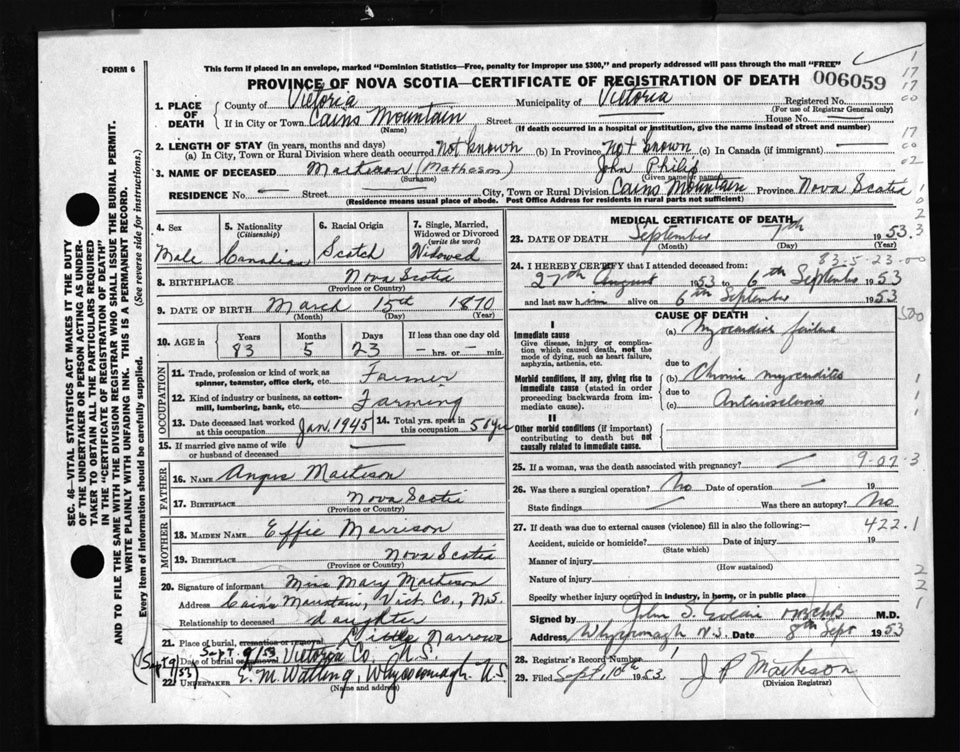 FORM 6
This form if placed in an envelope, marked "Dominion Statistics—Free, penalty for improper use $300," and properly addressed will pass through the mail "FREE"
PROVINCE OF NOVA SCOTIA—CERTIFICATE OF REGISTRATION OF DEATH 006059
1. PLACE OF DEATH
County of Victoria Municipality of Victoria Registered No.
(For use of Registrar General only)
If in City or Town Cains Mountain Street House No.
(Name) (If death occurred in a hospital or institution, give the name instead of street and number)
2. LENGTH OF STAY (in years, months and days)
(a) In City, Town or Rural Division where death occurred Not known (b) In Province Not known (c) In Canada (if immigrant)
3. NAME OF DECEASED Matheson (Matheson) John Philip
(Surname) (Given name or names)
RESIDENCE No. — Street City, Town or Rural Division Cains Mountain Province Nova Scotia
(Residence means usual place of abode. Post Office Address for residents in rural parts not sufficient)
4. Sex Male
5. Nationality (Citizenship) Canadian
6. Racial Origin Scotch
7. Single, Married, Widowed or Divorced (write the word) Widowed
8. BIRTHPLACE Nova Scotia
(Province or Country)
9. DATE OF BIRTH March 15th 1870
(Month) (Day) (Year)
10. AGE in Years 83 Months 5 Days 23 If less than one day old
— hrs. or — min.
OCCUPATION
11. Trade, profession or kind of work as spinner, teamster, office clerk, etc. Farmer
12. Kind of industry or business, as cotton-mill, lumbering, bank, etc. Farming
13. Date deceased last worked at this occupation Jan. 1945
14. Total yrs. spent in this occupation 50 yrs
15. If married give name of wife or husband of deceased
FATHER
16. NAME Angus Matheson
17. BIRTHPLACE Nova Scotia
(Province or Country)
MOTHER
18. MAIDEN NAME Effie Morrison
19. BIRTHPLACE Nova Scotia
(Province or Country)
20. Signature of informant Miss Mary Matheson
Address Cains Mountain, Vict. Co., N.S.
Relationship to deceased daughter
21. Place of burial, cremation or removal Little Narrows
Sept. 9/53 Victoria Co., N.S.
Date of burial or removal
(Sept 9/53)
22. UNDERTAKER E. M. Watling, Whycocomagh, N.S
(Name and address)
MEDICAL CERTIFICATE OF DEATH
23. DATE OF DEATH September 7th 1953
(Month) (Day) (Year)
83-5-23-00
24. I HEREBY CERTIFY that I attended deceased from:
27th August 1953 to 6th September 1953
and last saw him alive on 6th September 1953
CAUSE OF DEATH
I
Immediate cause
Give disease, injury or complication which caused death, not the mode of dying, such as heart failure, asphyxia, asthenia, etc.
(a) Myocardial failure
due to
Morbid conditions, if any, giving rise to immediate cause (stated in order proceeding backwards from immediate cause).
(b) Chronic myocarditis
due to
(c) Arteriosclerosis
II
Other morbid conditions (if important) contributing to death but not causally related to immediate cause.
25. If a woman, was the death associated with pregnancy? 9-07-3
26. Was there a surgical operation? No Date of operation 19
State findings Was there an autopsy? No
27. If death was due to external causes (violence) fill in also the following:— 422.1
Accident, suicide or homicide? Date of injury 19
(State which)
Manner of injury
(How sustained)
Nature of injury
Specify whether injury occurred in industry, in home, or in public place
Signed by John S. M.D.
Address Whycocomagh N.S. Date 8th Sept 1953
28. Registrar's Record Number
29. Filed Sept. 10th 1953. J P Matheson
(Division Registrar)
SEC. 46—VITAL STATISTICS ACT MAKES IT THE DUTY OF THE UNDERTAKER OR PERSON ACTING AS UNDERTAKER TO OBTAIN ALL THE PARTICULARS REQUIRED IN THE "CERTIFICATE OF REGISTRATION OF DEATH"
AND TO FILE THE SAME WITH THE DIVISION REGISTRAR WHO SHALL ISSUE THE BURIAL PERMIT.
WRITE PLAINLY WITH UNFADING INK. THIS IS A PERMANENT RECORD.
Every item of Information should be carefully supplied. (See reverse side for instructions.)